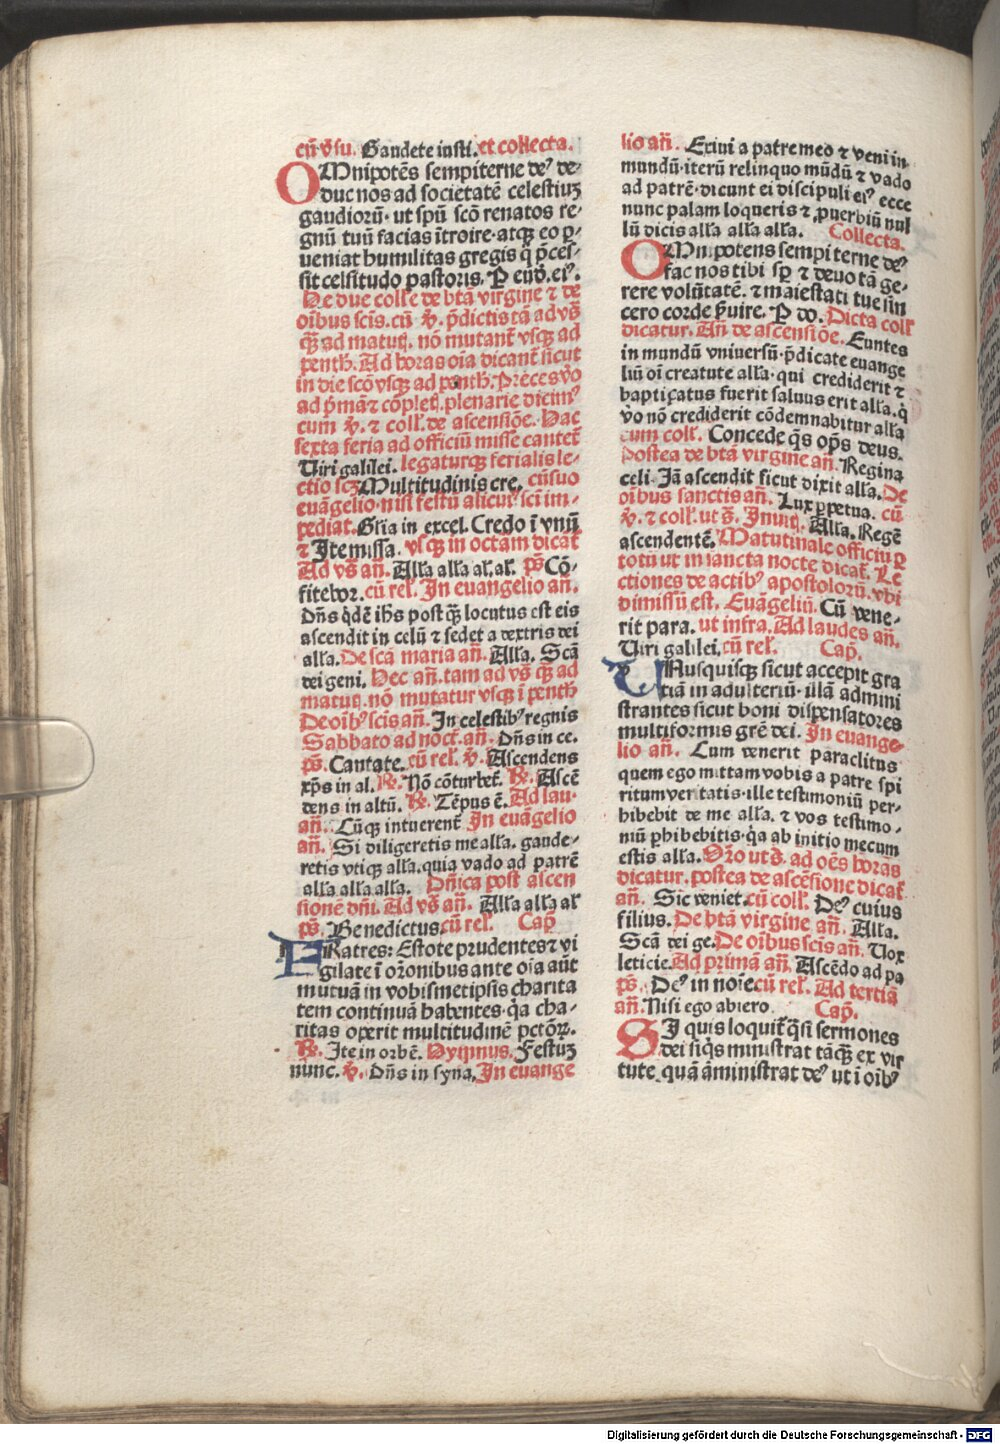 cū v̄su. Gaudete iusti. et collecta.
OMnipotēs sempiterne deꝰ de-
duc nos ad societatē celestiuꝫ
gaudioꝝ· ut spū scō renatos re-
gnū tuū facias ītroire· atqꝫ eo ꝑ-
ueniat humilitas gregis q̄ p̄ces-
sit celsitudo pastoris. P eūd̄. eiꝰ.
De due coll'e de btā virgine ⁊ de
oībus scīs. cū v̄. p̄dictis tā ad vs̄
q̄ꝫ ad matuṭ. nō mutant̄ vsqꝫ ad
penth. Ad horas oīa dicant̄ sicut
in die scō vsqꝫ ad penth. Preces v̄o
ad p̄mā ⁊ cōpleṭ. plenarie dicim⁹
cum v̄. ⁊ coll'. de ascensiōe. Hac
sexta feria ad officiū misse cantet̄
Uiri galilei. legaturqꝫ ferialis le-
ctio scꝫ Multitudinis cre. cū suo
euāgelio· nisi festū alicuiꝰ scī im-
pediat. Gl'ia in excel. Credo ī vnū
⁊ Ite missa. vsqꝫ in octam dicat̄
Ad vs̄ añ. Alla alla al. al. ps̄ Cō-
fitebor. cū rel'. In euangelio añ.
Dñs q̇dē ihs post q̄ꝫ locutus est eis
ascendit in celū ⁊ sedet a dextris dei
alla. De scā maria añ. Alla. Scā
dei geni. Hec añ. tam ad vs̄ q̄ꝫ ad
matuṭ. nō mutatur vsqꝫ ī penth
De oībꝰ scīs añ. In celestibꝰ regnis
Sabbato ad noct̄. añ. Dñs in ce.
ps̄. Cantate. cū rel'. v̄. Ascendens
xp̄s in al. ℟. Nō cōturbet̄. ℟. Ascē
dens in altū. ℟. Tēpus ē. Ad lau-
añ. Cūqꝫ intuerent̄ In euāgelio
añ. Si diligeretis me alla. gaude-
retis vtiqꝫ alla. quia vado ad patrē
alla alla alla. Dñica post ascen
sionē dñi. Ad vs̄ añ. Alla alla al'
ps̄. Benedictus. cū rel'. Cap̄
FRatres: Estote prudentes ⁊ vi
gilate ī orōnibus ante oīa aūt
mutuā in vobismetipsis charita
tem continuā habentes· q̇a cha-
ritas operit multitudinē pctōꝝ.
℟. Ite in orbē. Hymnus. Festuꝫ
nunc. v̄. Dñs in syna. In euange
lio añ. Exiui a patre meo ⁊ veni in
mundū· iterū relinquo mūdū ⁊ vado
ad patrē· dicunt ei discipuli eiꝰ ecce
nunc palam loqueris ⁊ ꝓuerbiū nul
lū dicis alla alla alla. Collecta.
OMnipotens sempiterne deꝰ
fac nos tibi sꝑ ⁊ deuotā ge-
rere volūtatē. ⁊ maiestati tue sin
cero corde s̄uire. P do. Dicta coll'
dicatur. Añ de ascensiōe. Euntes
in mundū vniuersū· p̄dicate euange
liū oī creature alla· qui crediderit ⁊
baptiçatus fuerit saluus erit alla. q̇
v̄o nō crediderit cōdemnabitur alla
cum coll'. Concede q̄s op̄s deus.
Postea de btā virgine añ. Regina
celi· Iā ascendit sicut dixit alla. De
oībus sanctis añ. Lux ꝑpetua. cū
v̄. ⁊ coll'. ut s̄. Inuiṭ. Alla. Regē
ascendentē. Matutinale officiū ꝑ
totū ut in sancta nocte dicat̄. Le
ctiones de actibꝰ apostolorū. vbi
dimissū est. Euāgeliū. Cū vene-
rit para. ut infra. Ad laudes añ.
Uiri galilei. cū rel'. Cap̄.
UNusquisqꝫ sicut accepit gra
tiā in adiulteriū· illā admini
strantes sicut boni dispensatores
multiformis grē dei. In euange-
lio añ. Cum venerit paraclitus
quem ego mittam vobis a patre spi
ritum veritatis· ille testimoniū per-
hibebit de me alla. ⁊ vos testimo-
niū ꝑhibebitis· q̇a ab initio mecum
estis alla. Orō ut s̄. ad oēs horas
dicatur. postea de ascēsione dicat̄
añ. Sic veniet. cū coll'. Deꝰ cuius
filius. De btā virgine añ. Alla.
Scā dei ge. De oībus scīs añ. Uox
leticie. Ad primā añ. Ascēdo ad pa
ps̄. Deꝰ in noīe cū rel'. Ad tertiā
añ. Nisi ego abiero Cap̄.
SI quis loquit̄ q̄si sermones
dei siq̇s ministrat tāq̄ꝫ ex vir
tute. quā āministrat deꝰ ut ī oībꝰ
Digitalisierung gefördert durch die Deutsche Forschungsgemeinschaft - DFG